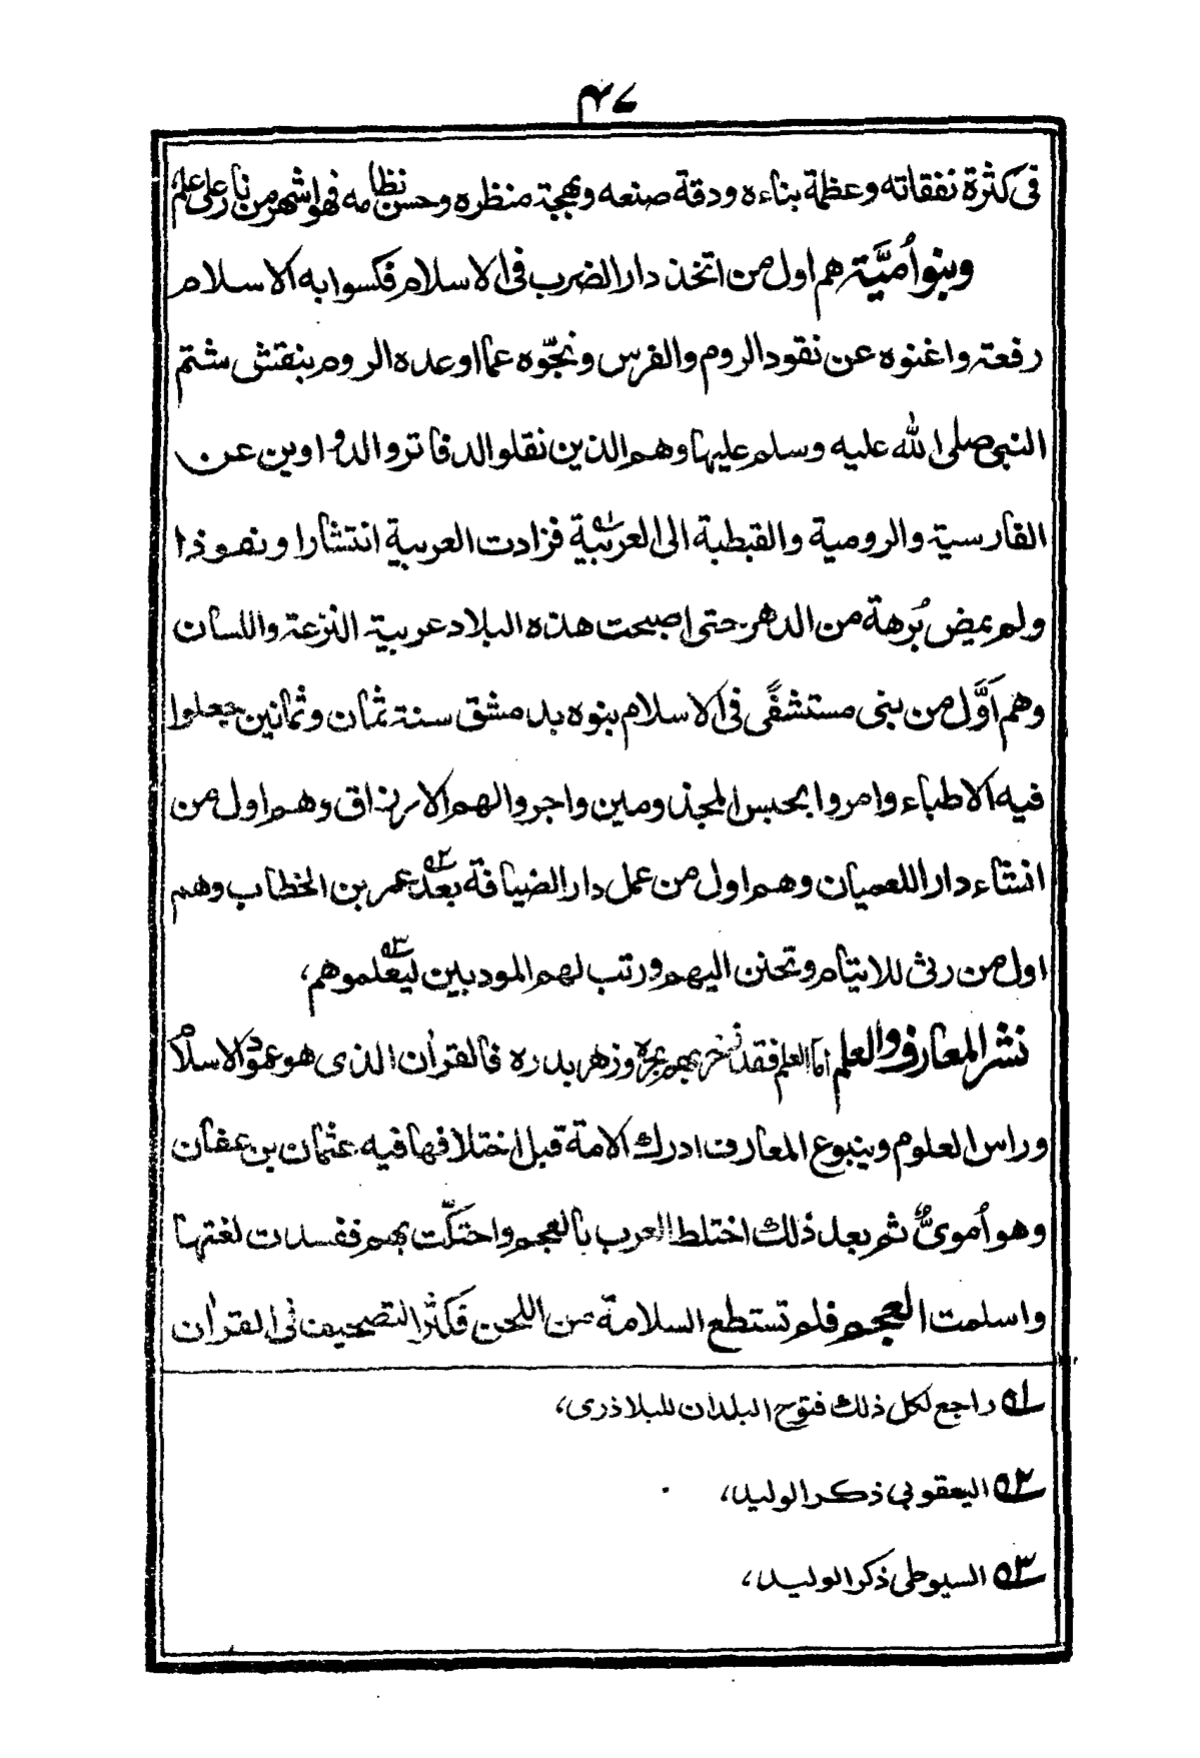 ٤٧
فى كثرة نفقاته وعظمة بناءه ودقة صنعه وبهجة منظره وحسن نظامه فهو اشهر من نار على علم
وبنو اُميَّة هم اول من اتخذ دار الضرب فى الاسلام فكسوا به الاسلام
رفعة واغنوه عن نقود الروم والفرس ونجّوه عما اوعده الروم بنقش شتم
النبى صلى الله عليه وسلم عليها وهم الذين نقلوا الدفاتر والدواوين عن
الفارسية والرومية والقبطية الى العربية ١ فزادت العربية انتشارا ونفوذا
ولم يمض بُرهة من الدهر حتى اصبحت هذه البلاد عربية النزعة واللسان
وهم اَوَّل من بنى مستشفًى فى الاسلام بنوه بدمشق سنة ثمان وثمانين جعلوا
فيه الاطباء وامروا بحبس المجذومين واجروا لهم الارزاق وهم اول من
انشاء دار اللعميان وهم اول من عمل دار الضيافة بعد ٢ عمر بن الخطاب وهم
اول من رثى للايتام وتحنن اليهم ورتب لهم المودبين ليعلموهم ٣،
نشر المعارف والعلم اما العلم فقد زخر بهم بحره وزهر بدره فالقرأن الذى هو عمود الاسلام
وراس العلوم وينبوع المعارف ادرك الامة قبل اختلافها فيه عثمان بن عفان
وهو اُموىٌّ ثم بعد ذلك اختلط العرب بالعجم واحتكّت بهم ففسدت لغتها
واسلمت العجم فلم تستطع السلامة من اللحن فكثر التصحيف فى القرأن
١ راجع لكل ذلك فتوح البلدان للبلاذرى،
٢ اليعقوبى ذكر الوليد،
٣ السيوطى ذكر الوليد،